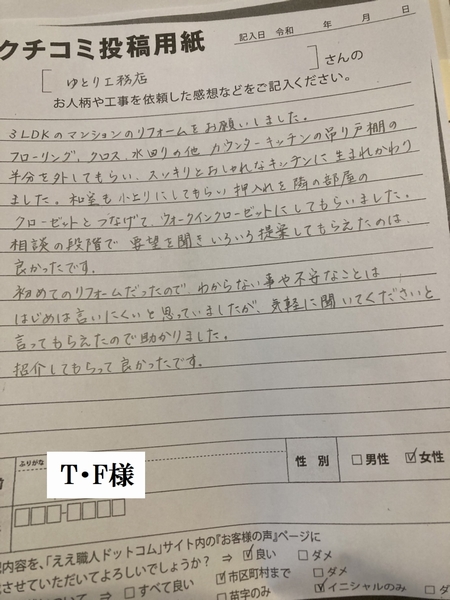 クチコミ投稿用紙
記入日 令和 年 月 日
[ゆとり工務店]さんの
お人柄や工事を依頼した感想などをご記入ください。
3LDKのマンションのリフォームをお願いしました。
フローリング、クロス、水回りの他 カウンターキッチンの吊り戸棚の
半分を外してもらい、スッキリとおしゃれなキッチンに生まれかわり
ました。和室も小上りにしてもらい 押入れを隣の部屋の
クローゼットとつなげて、ウォークインクローゼットにしてもらいました。
相談の段階で 要望を聞きいろいろ提案してもらえたのは、
良かったです。
初めてのリフォームだったので、わからない事や不安なことは
はじめは言いにくいと思っていましたが、気軽に聞いてくださいと
言ってもらえたので助かりました。
紹介してもらって良かったです。
ふりがな
T・F様
性別 □男性 ☑女性
内容を、「ええ職人ドットコム」サイト内の『お客様の声』ページに
させていただいてよろしいでしょうか? ⇒ ☑良い □ダメ
ついて ⇒ □すべて良い ☑市区町村まで □ダメ
□苗字のみ ☑イニシャルのみ □ダ